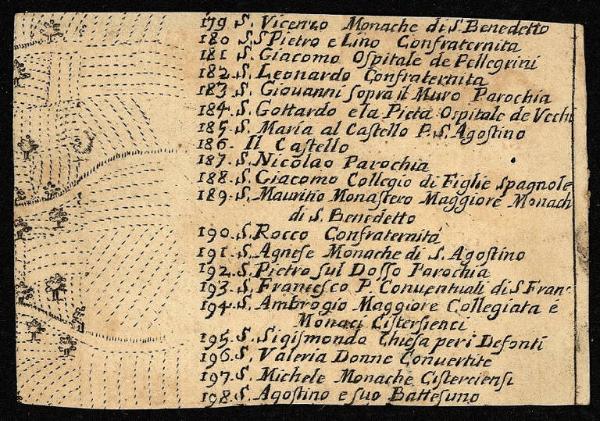 179 S. Vicenzo Monache di S. Benedetto
180 S S Pietro e Lino Confraternita
181 S. Giacomo Ospitale de Pellegrini
182. S. Leonardo Confraternita
183. S. Giovanni sopra il Muro Parochia
184. S. Gottardo e la Pietà Ospitale de Vechi
185. S. Maria al Castello P. S. Agostino
186. Il Castello
187. S. Nicolao Parochia
188. S. Giacomo Collegio di Figlie Spagnole
189. S. Mauritio Monastero Maggiore Monach
di S. Benedetto
190. S. Rocco Confraternitá
191. S. Agnese Monache di S. Agostino
192. S. Pietro sul Dosso Parochia
193. S. Francesco P. Conventuali di S. Fran.
194. S. Ambrogio Maggiore Collegiata é
Monaci Cistersienci
195. S. Sigismondo Chiesa per i Defonti
196. S. Valeria Donne Convertite
197. S. Michele Monache Cisterciensi
198. S. Agostino e suo Battesuno